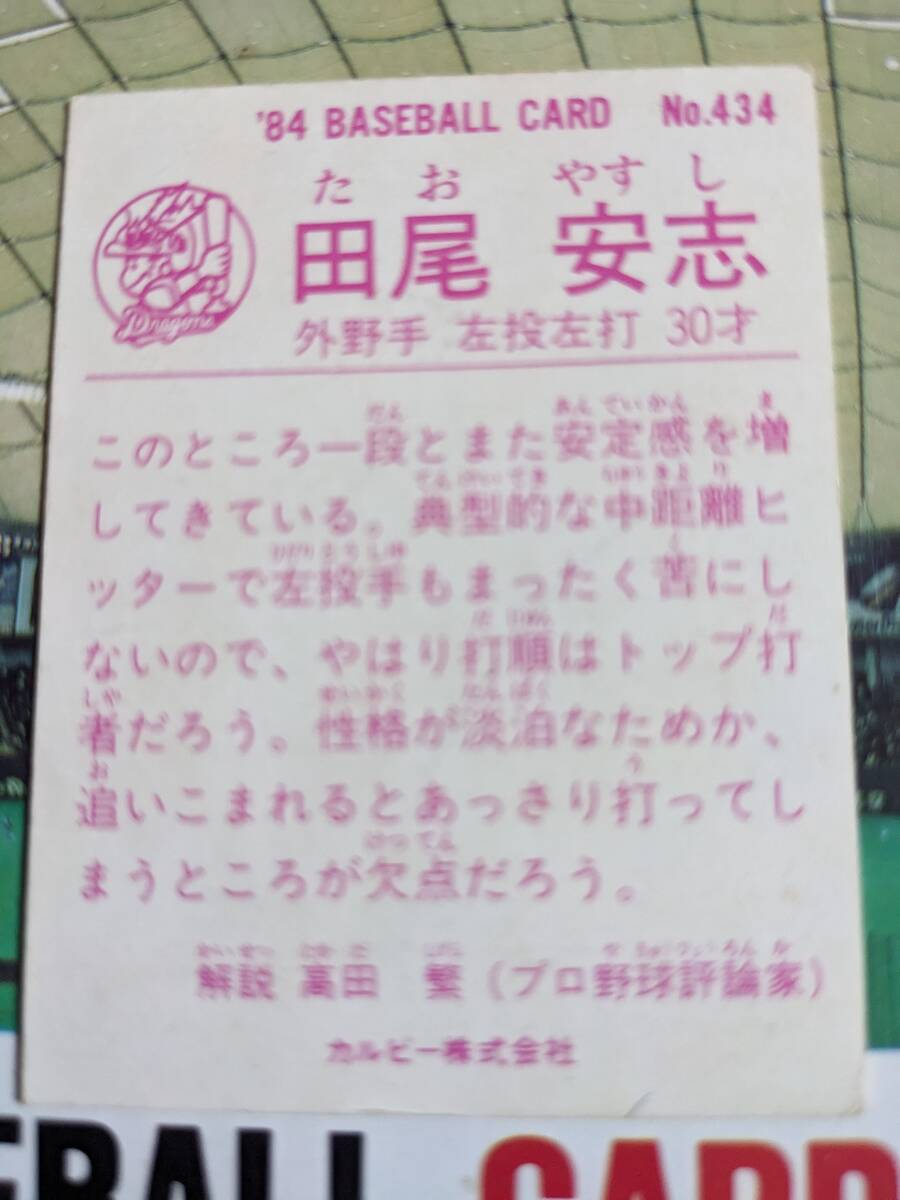 '84 BASEBALL CARD No.434
たお やすし
田尾 安志
Dragons
外野手 左投左打 30才
このところ一段とまた安定感を増
してきている。典型的な中距離ヒ
ッターで左投手もまったく苦にし
ないので、やはり打順はトップ打
者だろう。性格が淡泊なためか、
追いこまれるとあっさり打ってし
まうところが欠点だろう。
解説 高田 繁(プロ野球評論家)
カルビー株式会社